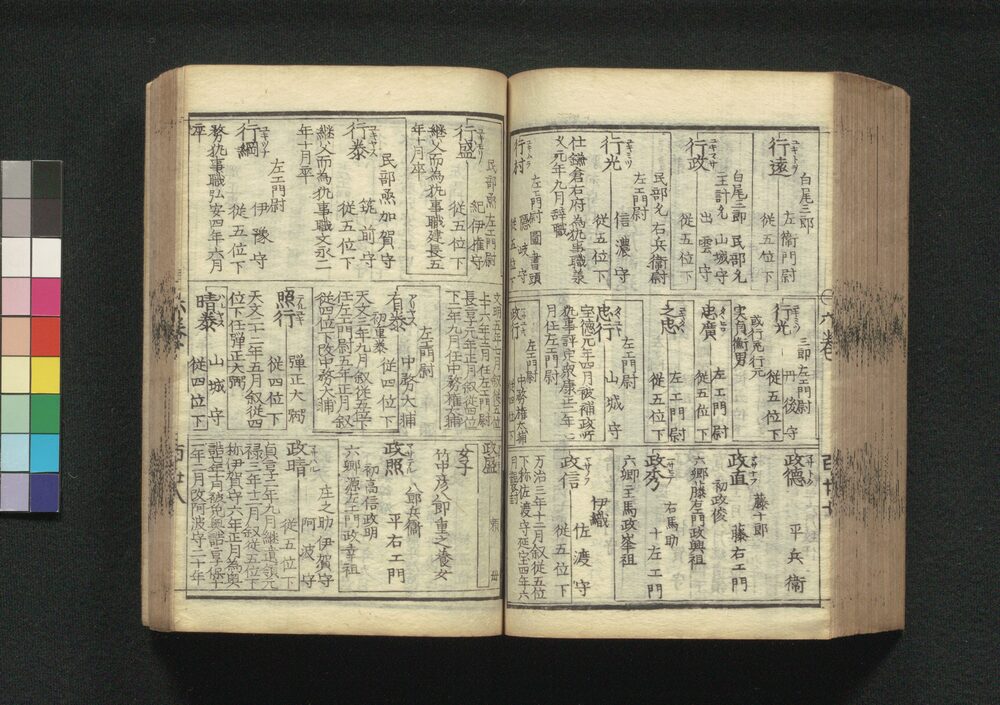 行遠
白尾三郎
左衛門尉
従五位下
行政
白尾二郎 民部允
主計允 山城守
出雲守
従五位下
行光
民部允 右兵衛尉
左エ門尉
信濃守
従五位下
仕鎌倉右府為執事職
元年九月辞職
行村
左エ門尉 圖書頭
隠岐守
従五位下
行光
三郎 左エ門尉
丹後守
従五位下
或行憲行元
実貞衡男
忠廣
左エ門尉
従五位下
之忠
左エ門尉
従五位下
忠行
左エ門尉
山城守
宝徳元年四月被補政所
執事評定衆康正二年
月任左エ門尉
政行
左エ門尉
中務権太輔
従四位下
政徳
平兵衛
政直
藤十郎
初政俊
藤右エ門
六郷藤左エ門政興祖
政秀
右馬助
十左エ門
六郷主馬政峯祖
政信
伊織
佐渡守
従五位下
万治三年十二月叙従五位
下称佐渡守延宝四年六
行盛
民部丞 左エ門尉
紀伊権守
従五位下
継父而為執事職建長五
年十月卒
行泰
民部丞加賀守
筑前守
従五位下
継父而為執事職文永二
年十月卒
行綱
左エ門尉
伊豫守
従五位下
務執事職弘安四年六月
卒
文明五年七月叙従五位
上十六年十二月任左エ門尉
長享元年正月叙従四位
下二年九月任中務権大輔
有泰
左エ門尉
初重泰
中務大輔
従四位下
天文三年六月叙従五位下
任左エ門尉五年正月叙
従四位下改中務大輔
照行
弾正大弼
従四位下
天文二十二年五月叙従四
位下任弾正大弼
晴泰
山城守
従四位下
政盛
女子
竹中彦八郎重之養女
政照
八郎兵衛
初高信政明
平右エ門
六郷源左エ門政章祖
政晴
庄之助 伊賀守
阿波守
従五位下
貞享二年九月継遺領元
禄三年十二月叙従五位下
称伊賀守六年正月為奥
二年二月改阿波守二十年